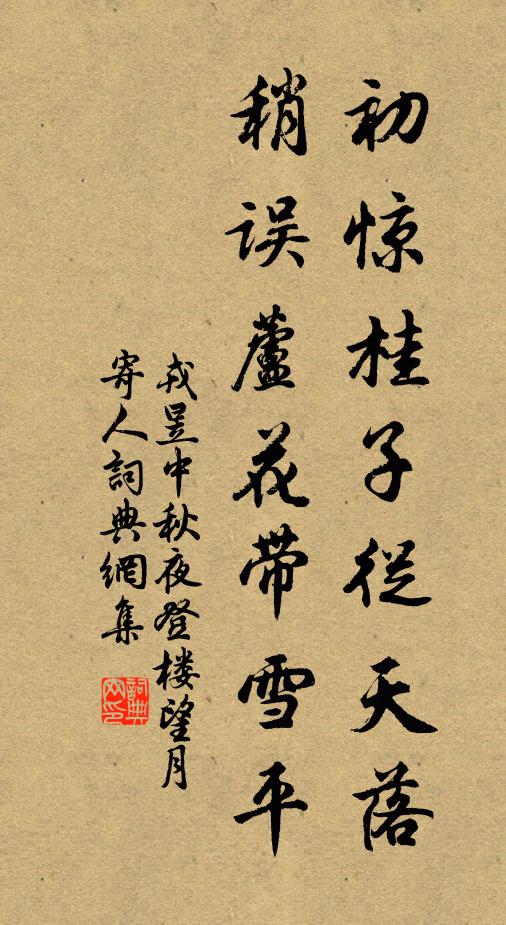 初惊桂子從天落
稍误蘆花带雪平
戎昱中秋夜登楼望月
寄人詞典網集
詞典
网印